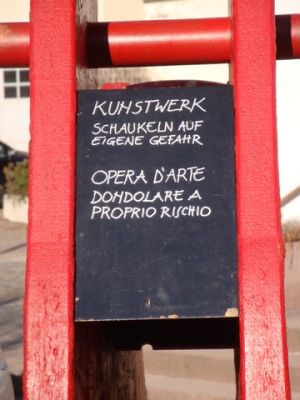 KUNSTWERK
SCHAUKELN AUF
EIGENE GEFAHR
OPERA D'ARTE
DONDOLARE A
PROPRIO RISCHIO